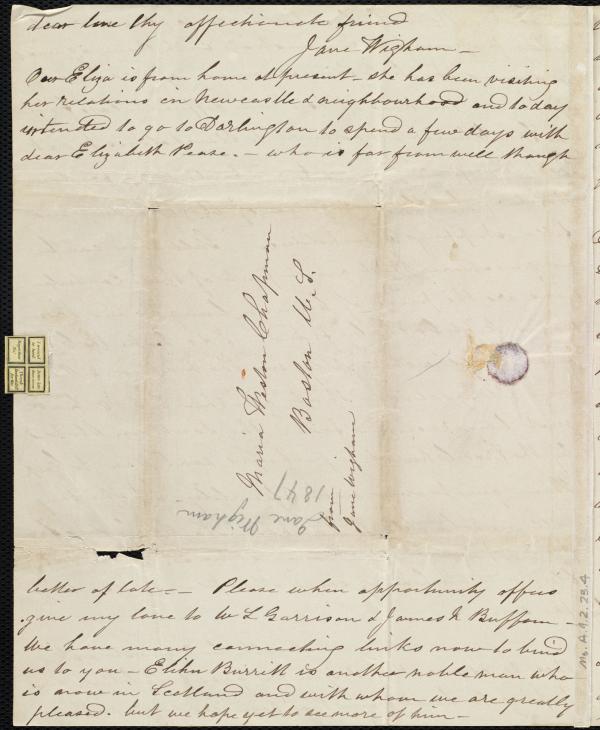 dear love thy affectionate friend
Jane Wigham -
Our Eliza is from home at present - she has been visiting
her relations in Newcastle & neighbourhood and today
intended to go to Darlington to spend a few days with
dear Elizabeth Pease. - who is far from well though
Maria Weston Chapman
Boston U.S.
from
Jane Wigham
Jane Wigham
1847
better of late - - Please when opportunity offers
give my love to W L Garrison & James N Buffum -
We have many connecting links now to bind
us to you - Elihu Burritt is another noble man who
is now in Scotland and with whom we are greatly
pleased. but we hope yet to see more of him -
Ms. A. 9. 2. 23. 4